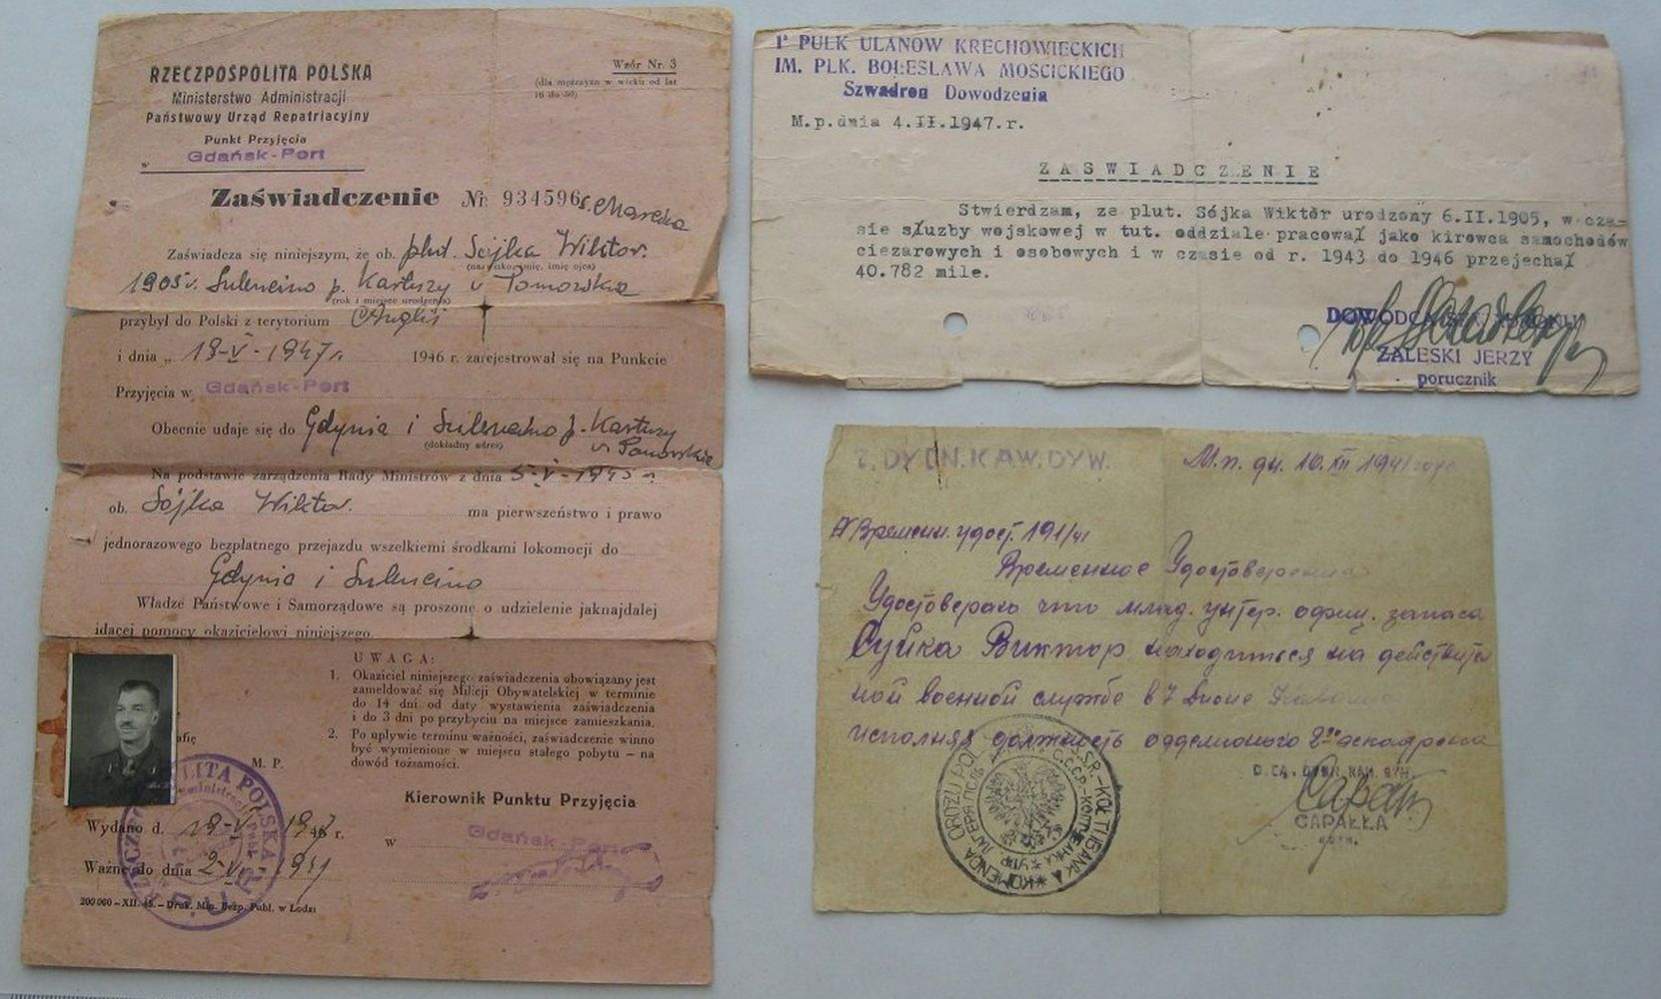 RZECZPOSPOLITA POLSKA
Ministerstwo Administracji
Państwowy Urząd Repatriacyjny
Punkt Przyjęcia
w Gdańsk-Port
Wzór Nr. 3
(dla mężczyzn w wieku od lat
16 do 50)
Zaświadczenie Nr 934596
Zaświadcza się niniejszym, że ob. plut. Sójka Wiktor.
1905 r. Sulencino p. Kartuzy
(rok i miejsce urodzenia)
przybył do Polski z terytorium Anglii
i dnia „ 19-V-1947 r. 1946 r. zarejestrował się na Punkcie
Przyjęcia w Gdańsk-Port
Obecnie udaje się do Gdynia i Sulencino p. Kartuzy
(dokładny adres)
Na podstawie zarządzenia Rady Ministrów z dnia 5-V-1945 r.
ob. Sójka Wiktor. ma pierwszeństwo i prawo
jednorazowego bezpłatnego przejazdu wszelkiemi środkami lokomocji do
Gdynia i Sulencino
Władze Państwowe i Samorządowe są proszone o udzielenie jaknajdalej
idącej pomocy okazicielowi niniejszego.
UWAGA:
1. Okaziciel niniejszego zaświadczenia obowiązany jest
zameldować się Milicji Obywatelskiej w terminie
do 14 dni od daty wystawienia zaświadczenia
i do 3 dni po przybyciu na miejsce zamieszkania.
2. Po upływie terminu ważności, zaświadczenie winno
być wymienione w miejscu stałego pobytu – na
dowód tożsamości.
M. P.
Kierownik Punktu Przyjęcia
w Gdańsk-Port
Wydano d. 19-V- 1947 r.
Ważne do dnia
200 000 – XII. 45. – Druk. Min. Bezp. Publ. w Łodzi
1 PUŁK UŁANÓW KRECHOWIECKICH
IM. PŁK. BOLESŁAWA MOŚCICKIEGO
Szwadron Dowodzenia
M.p.dnia 4.II.1947.r.
ZASWIADCZENIE
Stwierdzam, ze plut. Sójka Wiktor urodzony 6.II.1905, w cza-
sie służby wojskowej w tut. oddziale pracował jako kirowca samochodów
ciezarowych i osobowych i w czasie od r. 1943 do 1946 przejechał
40.782 mile.
ZALESKI JERZY
porucznik
7. DYON.KAW.DYW.
М.п. дн. 10.XII 1941
Времен. удост. 191/41
Временное Удостоверение
Удостоверяю что млад. унтер. офиц. запаса
Суйка Виктор находиться на действитель
ной военной службе в 7
исполняя должность 2го эскадрона
CAPAŁŁA